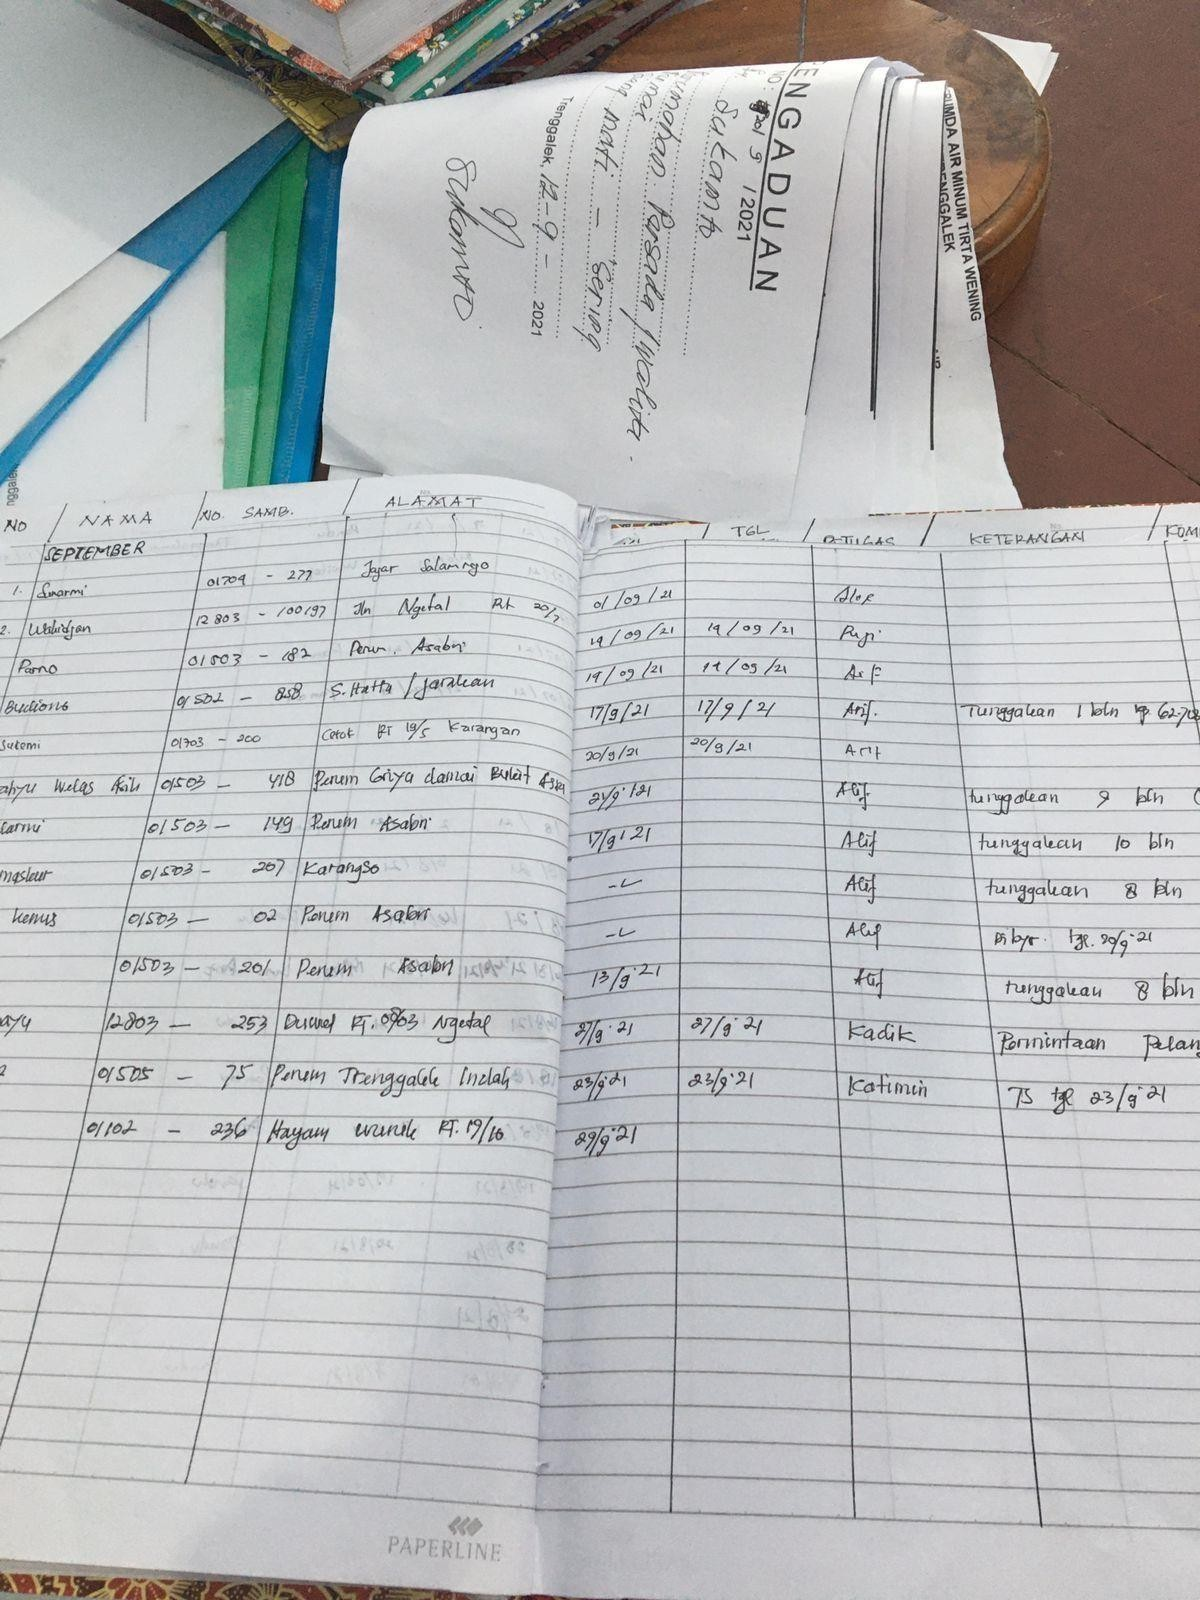 PENGADUAN
NO: 9201 9 / 2021
Sukamto
Perumahan Persada / Walikta.
mati - sering
Trenggalek, 12-9- 2021
Sukamto
PERUMDA AIR MINUM TIRTA WENING
TRENGGALEK
nggalek
NO / NAMA / NO. SAMB. / ALAMAT / TGL / PETUGAS / KETERANGAN / KOM
SEPTEMBER
1. Sunarmi 01704 - 277 Jajar Salamrejo 01/09/21 Alif
2. Wakidjan 12803 - 100197 Jln Ngetal Rt 20/7 14/09/21 14/09/21 Puji
Parno 01503 - 182 Perum. Asabri 14/09/21 14/09/21 Arif
Budiono 01502 - 858 S.Hatta / Jarakan 17/9/21 17/9/21 Arif. Tunggakan 1 bln rp 62.70
Sukemi 01703 - 200 Cetok RT 19/5 Karangan 20/9/21 20/9/21 Arif
ahyu Welas Asih 01503 - 418 Perum Griya damai Bukit Asri 21/9'21 Alif tunggakan 9 bln
01503 - 149 Perum Asabri 17/9'21 Alif tunggakan 10 bln
01503 - 207 Karangso -"- Alif tunggakan 8 bln
01503 - 02 Perum Asabri -"- Alif Dibyr. tgl. 20/9'21
01503 - 201 Perum Asabri 13/9'21 Alif tunggakan 8 bln
ayu 12803 - 253 RT. 09/03 Ngetal 27/9'21 27/9'21 Kadik Permintaan Pelang
01505 - 75 Perum Trenggalek Indah 23/9'21 23/9'21 Katimin TS tgl 23/9'21
01102 - 236 Hayam wuruk RT. 19/10 29/9'21
PAPERLINE